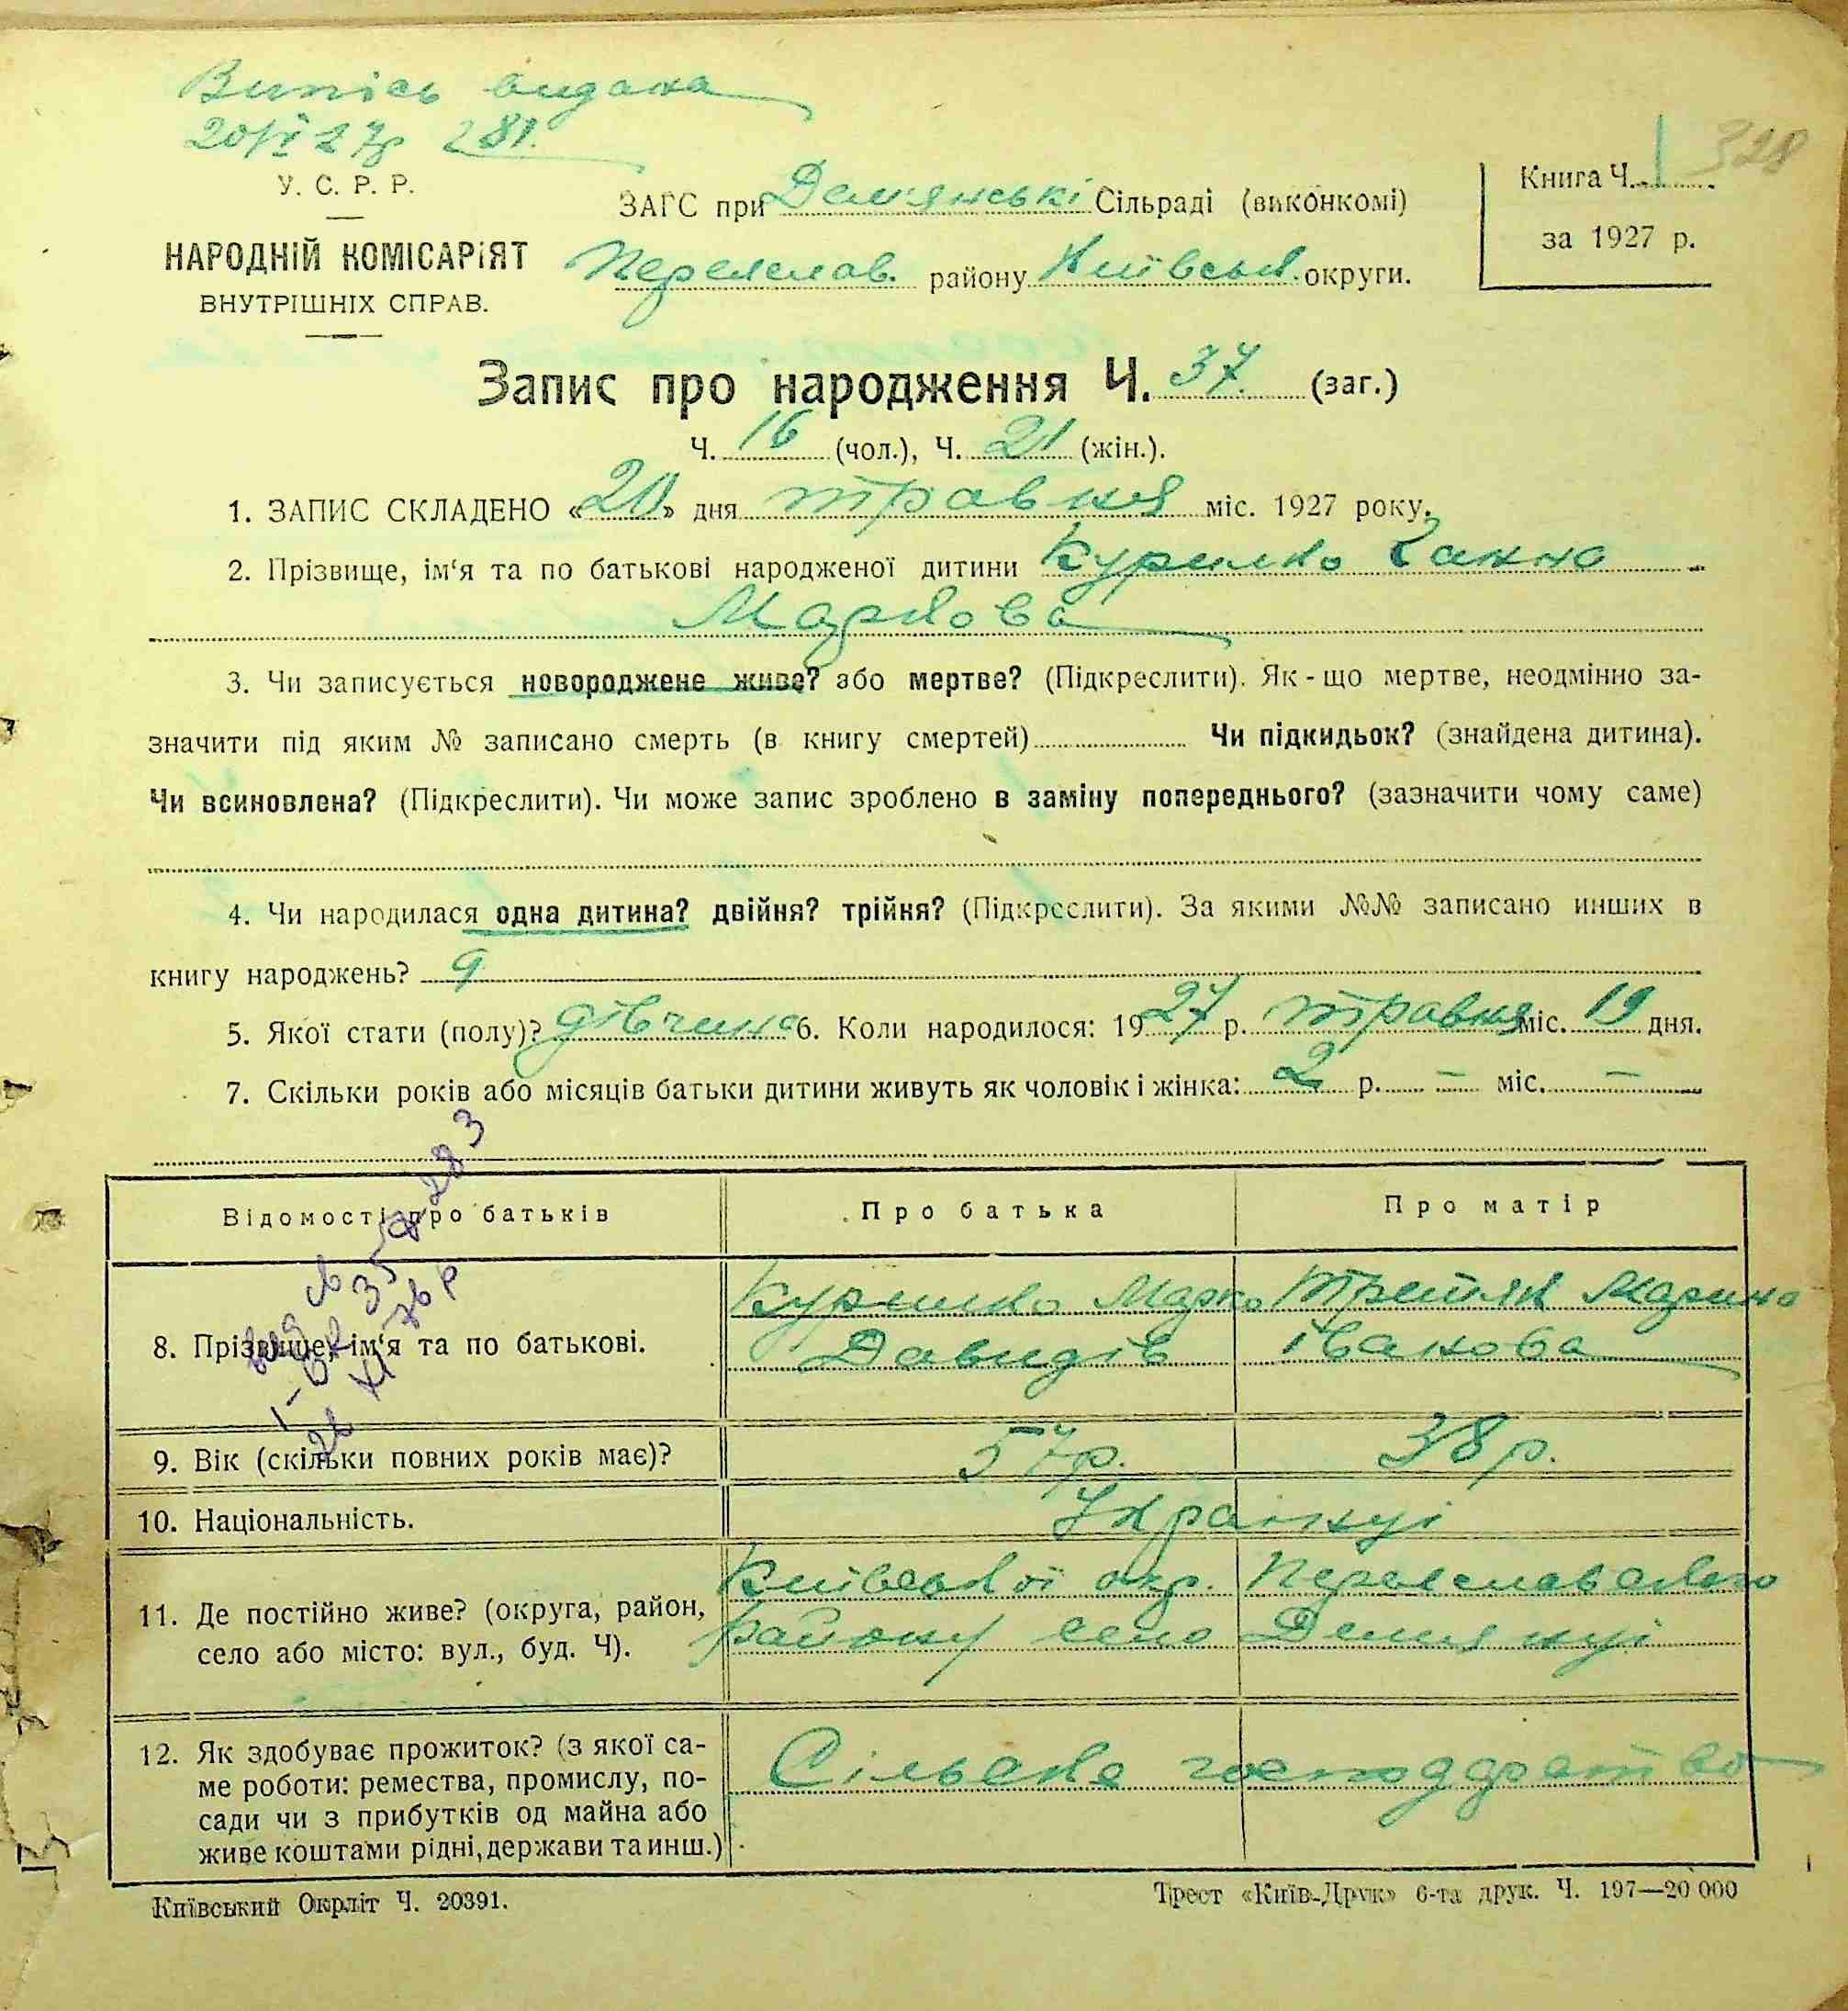 Випісь видана
20/V 27р 281.
У. С. Р. Р.
НАРОДНІЙ КОМІСАРІЯТ
ВНУТРІШНІХ СПРАВ.
ЗАГС при Демянські Сільраді (виконкомі)
Переяслав. району Київськ. округи.
Книга Ч. 1
за 1927 р.
328
Запис про народження Ч. 37. (заг.)
Ч. 16 (чол.), Ч. 21 (жін.).
1. ЗАПИС СКЛАДЕНО «20» дня травня міс. 1927 року.
2. Прізвище, ім‘я та по батькові народженої дитини Курилко Ганна
Маркова
3. Чи записується новороджене живе? або мертве? (Підкреслити). Як-що мертве, неодмінно за-
значити під яким № записано смерть (в книгу смертей) Чи підкидьок? (знайдена дитина).
Чи всиновлена? (Підкреслити). Чи може запис зроблено в заміну попереднього? (зазначити чому саме)
4. Чи народилася одна дитина? двійня? трійня? (Підкреслити). За якими №№ записано инших в
книгу народжень? 9
5. Якої стати (полу)? дівчина 6. Коли народилося: 1927 р. травня міс. 19 дня.
7. Скільки років або місяців батьки дитини живуть як чоловік і жінка: 2 р. – міс. –
Відомості про батьків Про батька Про матір
8. Прізвище, ім‘я та по батькові.
Курилко Марко Давидів
Третяк Марина Іванова
9. Вік (скільки повних років має)? 57р. 38р.
10. Національність. Українці
11. Де постійно живе? (округа, район,
село або місто: вул., буд. Ч).
Київської окр. Переяславського
району село Демянці
12. Як здобуває прожиток? (з якої са-
ме роботи: ремества, промислу, по-
сади чи з прибутків од майна або
живе коштами рідні, держави та инш.)
Сільське господарство
Київський Окрліт Ч. 20391.
Трест «Київ-Друк» 6-та друк. Ч. 197—20 000